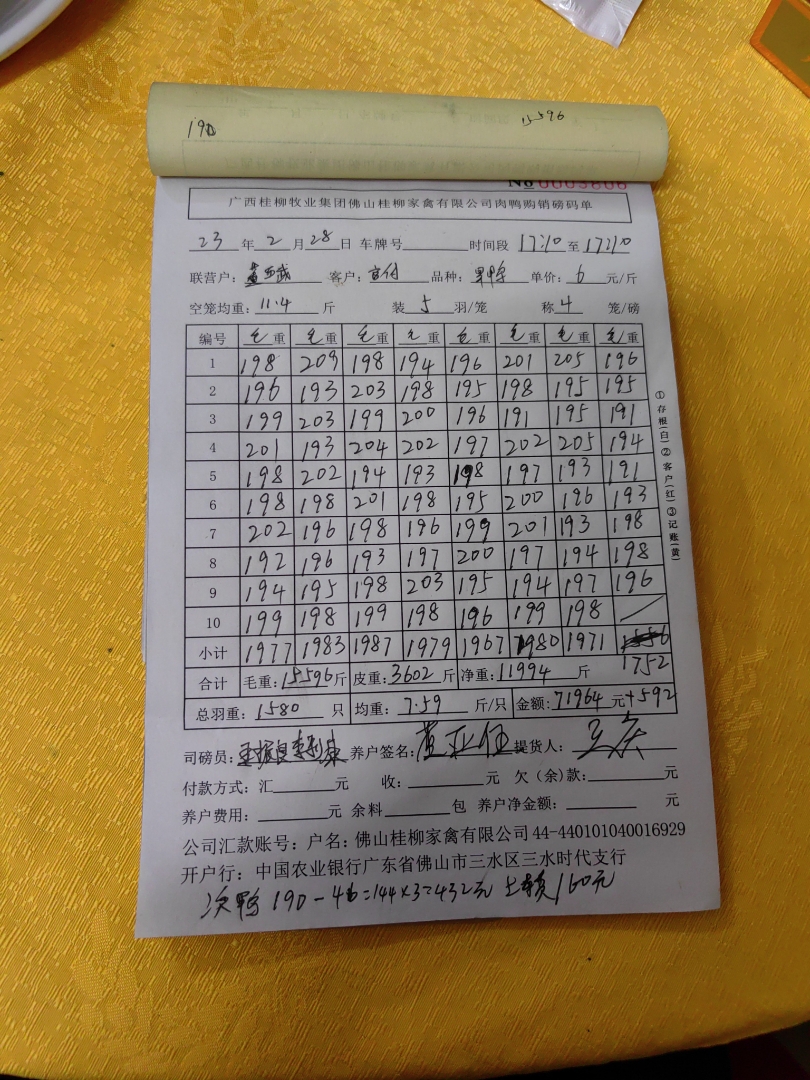 190 15596
No 0003806
广西桂柳牧业集团佛山桂柳家禽有限公司肉鸭购销磅码单
23年2月28日 车牌号 时间段 17:10至17:10
联营户: 客户: 品种: 单价: 6 元/斤
空笼均重: 11.4 斤 装 5 羽/笼 称 4 笼/磅
编号 毛重 毛重 毛重 毛重 毛重 毛重 毛重 毛重
1 198 209 198 194 196 201 205 196
2 196 193 203 198 195 198 195 195
3 199 203 199 200 196 191 195 191
4 201 193 204 202 197 202 205 194
5 198 202 194 193 198 197 193 191
6 198 198 201 198 195 200 196 193
7 202 196 198 196 199 201 193 198
8 192 196 193 197 200 197 194 198
9 194 195 198 203 195 194 197 196
10 199 198 199 198 196 199 198
小计 1977 1983 1987 1979 1967 1980 1971 1752
合计 毛重: 15596 斤 皮重: 3602 斤 净重: 11994 斤
总羽重: 1580 只 均重: 7.59 斤/只 金额: 71964 元+592
司磅员: 养户签名: 提货人:
付款方式: 汇 元 收: 元 欠(余)款: 元
养户费用: 元 余料 包 养户净金额: 元
公司汇款账号: 户名: 佛山桂柳家禽有限公司 44-440101040016929
开户行: 中国农业银行广东省佛山市三水区三水时代支行
次鸭 190-46=144×3=432元 160元
①存根(白)②客户(红)③记账(黄)